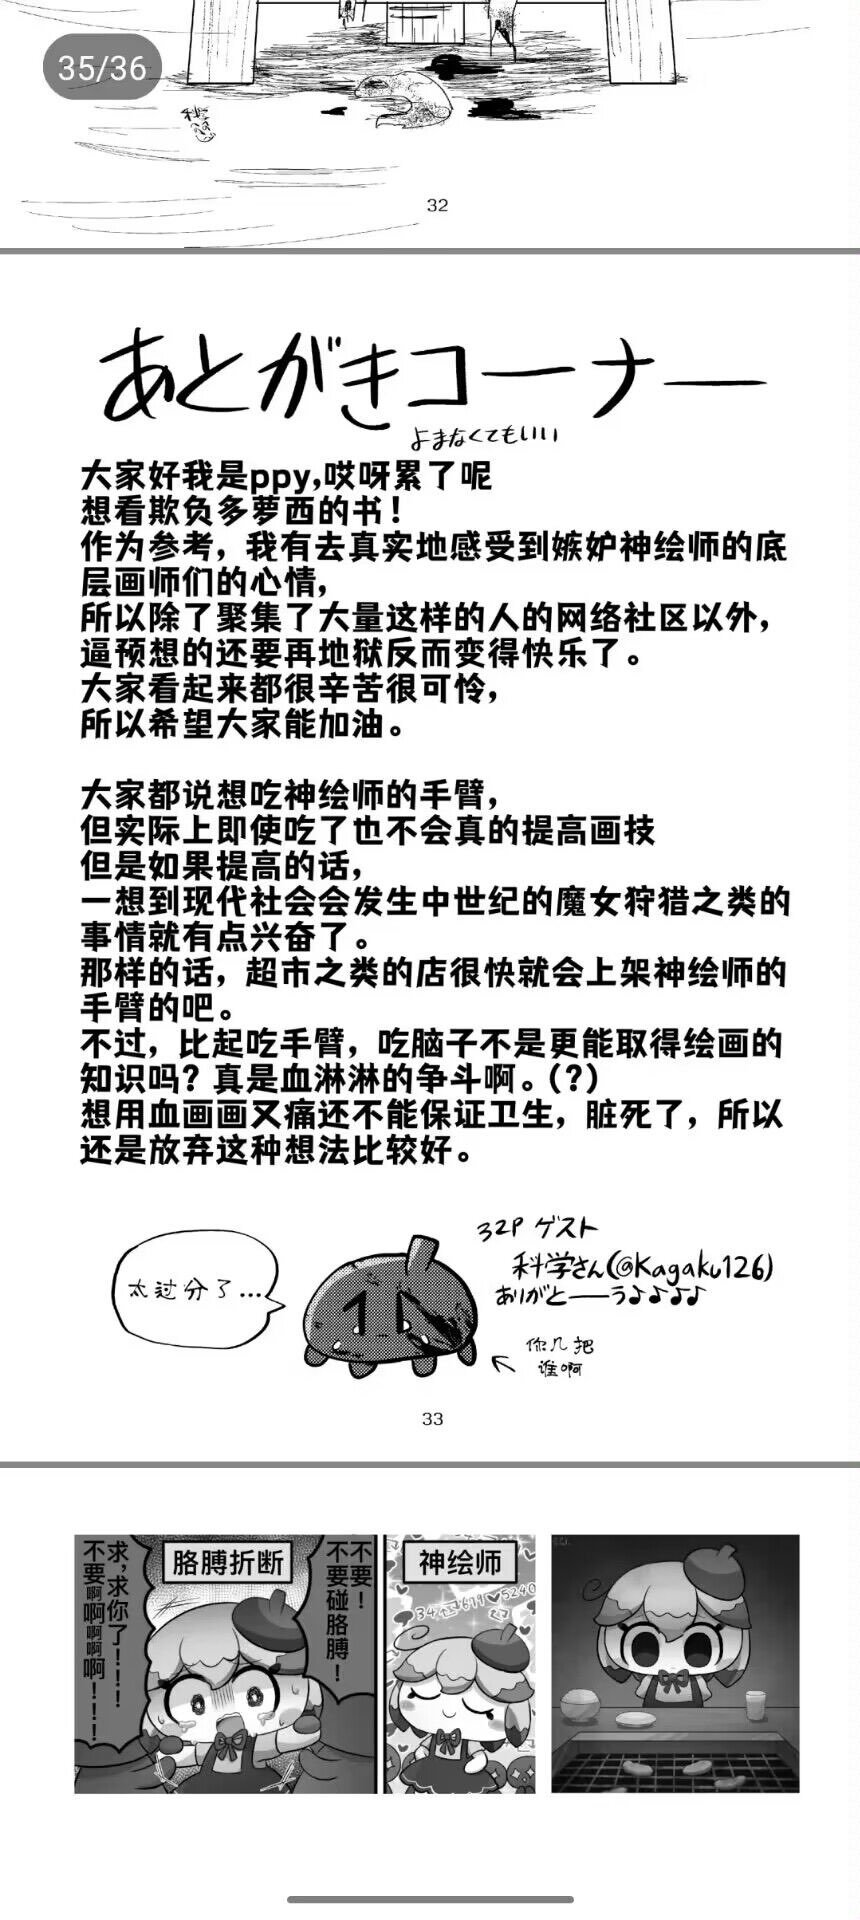 35/36
32
あとがきコーナー
よまなくてもいい
大家好我是ppy,哎呀累了呢
想看欺负多萝西的书！
作为参考，我有去真实地感受到嫉妒神绘师的底
层画师们的心情，
所以除了聚集了大量这样的人的网络社区以外，
逼预想的还要再地狱反而变得快乐了。
大家看起来都很辛苦很可怜，
所以希望大家能加油。
大家都说想吃神绘师的手臂，
但实际上即使吃了也不会真的提高画技
但是如果提高的话，
一想到现代社会会发生中世纪的魔女狩猎之类的
事情就有点兴奋了。
那样的话，超市之类的店很快就会上架神绘师的
手臂的吧。
不过，比起吃手臂，吃脑子不是更能取得绘画的
知识吗？真是血淋淋的争斗啊。（？）
想用血画画又痛还不能保证卫生，脏死了，所以
还是放弃这种想法比较好。
太过分了...
32P ゲスト
科学さん(@Kagaku126)
ありがとーーう♪♪♪♪
你几把
谁啊
33
不要！
不要碰胳膊！
胳膊折断
求，求你了！！！
不要啊啊啊啊！！！
神绘师